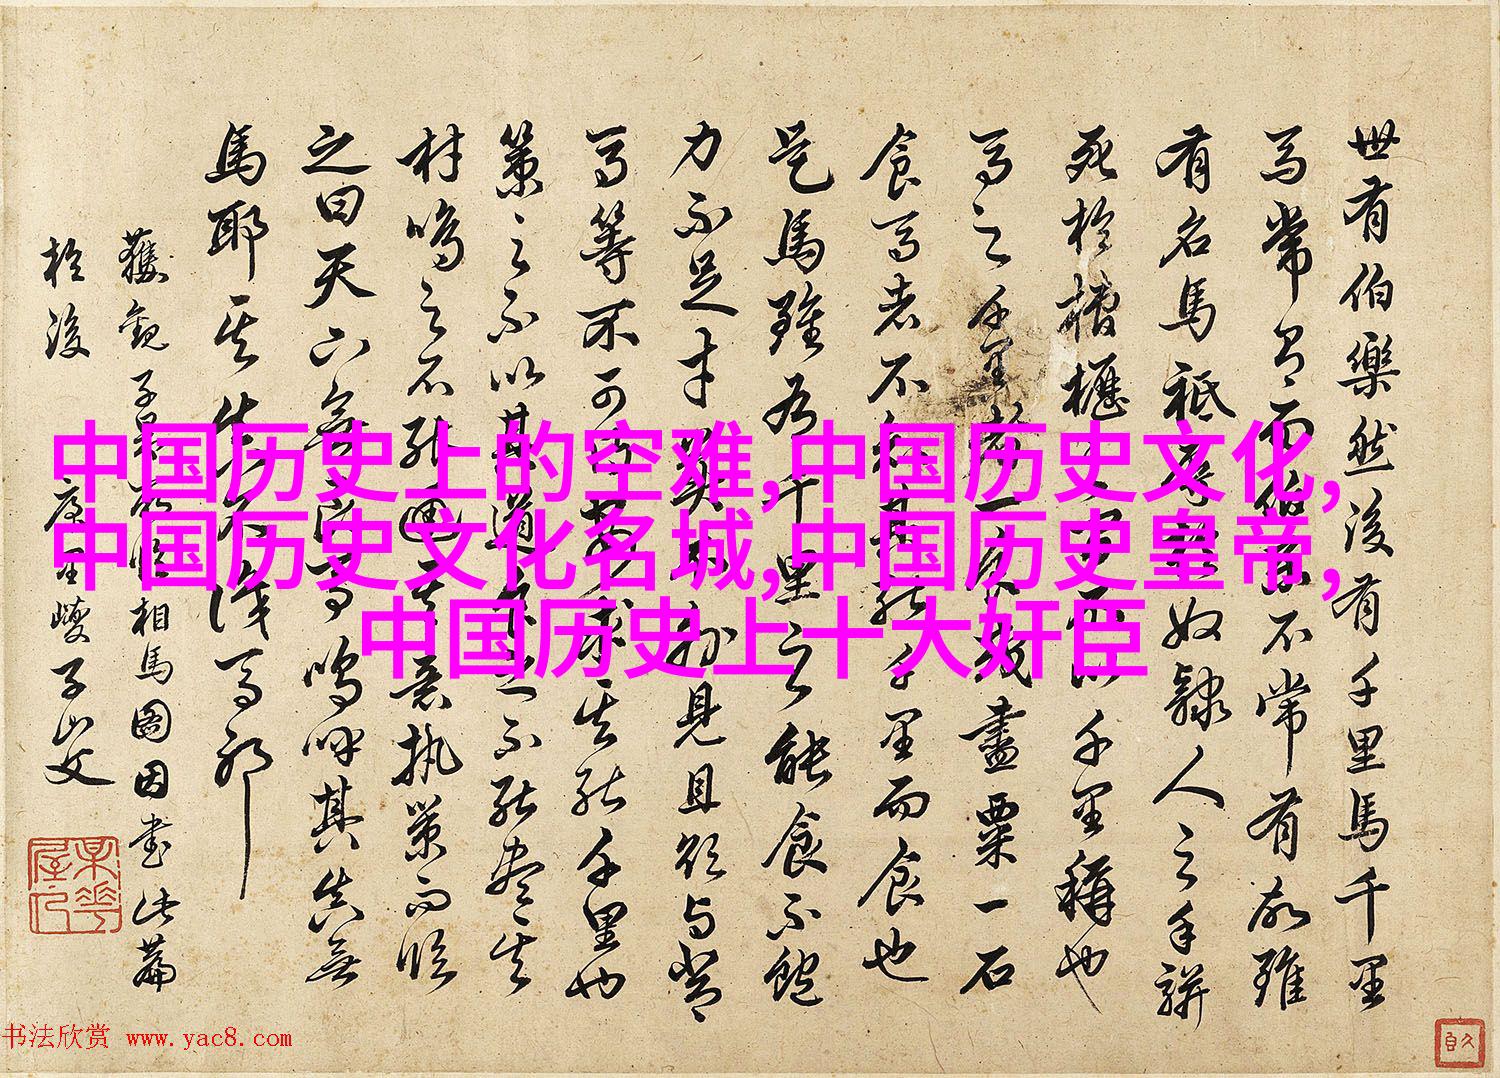 世有伯樂然後有千里馬千里
馬常有而伯樂不常有故雖
有名馬祗辱於奴隸人之手駢
死於槽櫪之中不以千里稱也
馬之千里者一食或盡粟一石
食馬者不知其能千里而食也
是馬雖有千里之能食不飽
力不足才美不外見且欲與常
馬等不可得安求其能千里也
策之不以其道食之不能盡其
材鳴之不能通其意執策而臨
之曰天下無良馬嗚呼其真無
馬耶其真不識馬耶
獲觀子昂相馬圖因書此篇
於後
康里巎子山父
中国历史上的空难,中国历史文化,
中国历史文化名城,中国历史皇帝,
中国历史上十大奸臣
书法欣赏 www.yac8.com